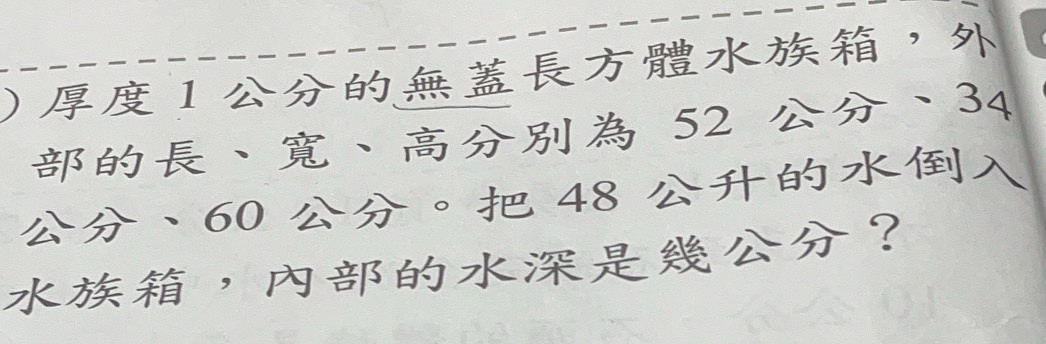 )厚度 1 公分的無蓋長方體水族箱，外
部的長、寬、高分別為 52 公分、34
公分、60 公分。把 48 公升的水倒入
水族箱，內部的水深是幾公分？